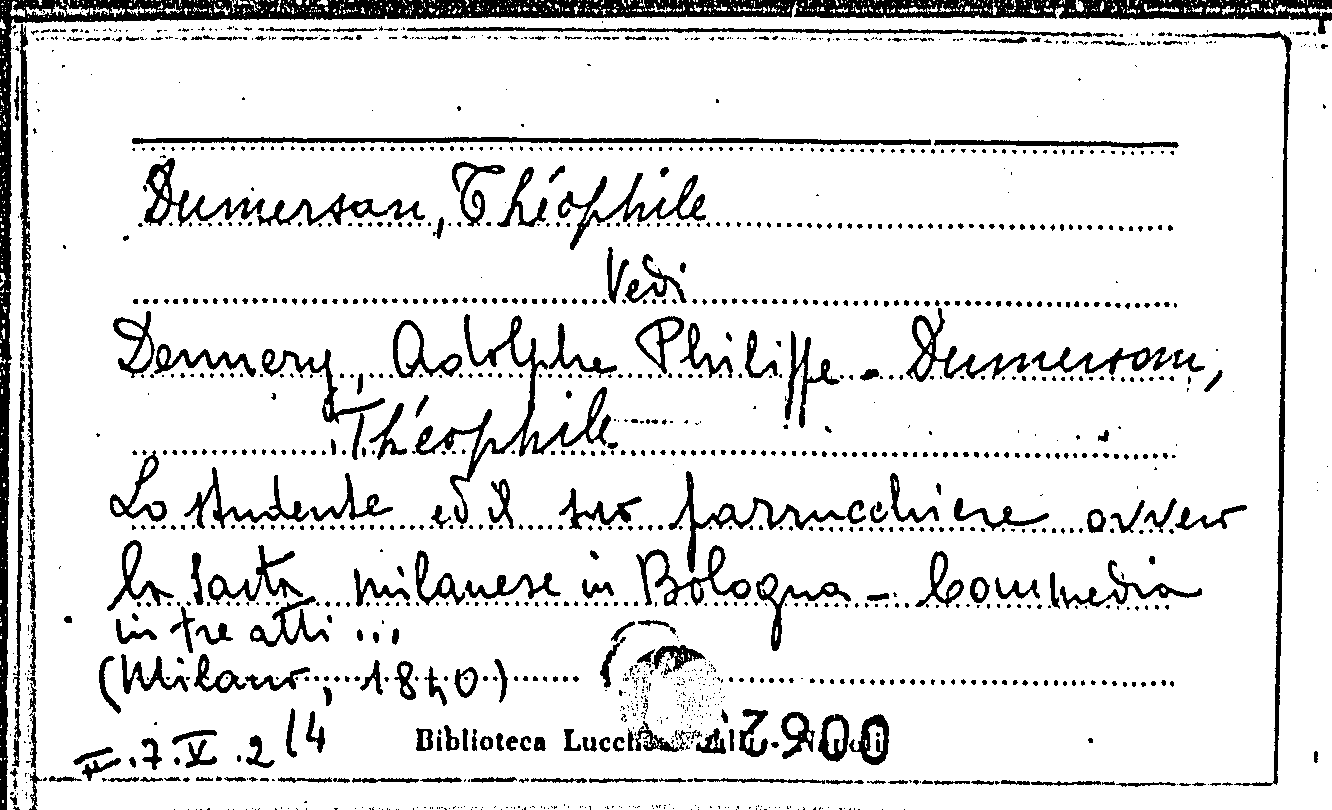 Dumersan, Théophile
Vedi
Dennery, Adolphe Philippe - Dumersan,
Théophile
Lo studente ed il suo parrucchiere ovvero
la sarta milanese in Bologna - Commedia
in tre atti ...
(Milano, 1840)
II.7.V.2/4
Biblioteca Lucchesi Palli - Napoli